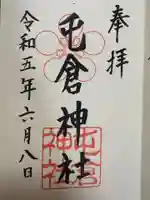 奉拝
屯倉神社
令和五年六月八日
屯倉
神社